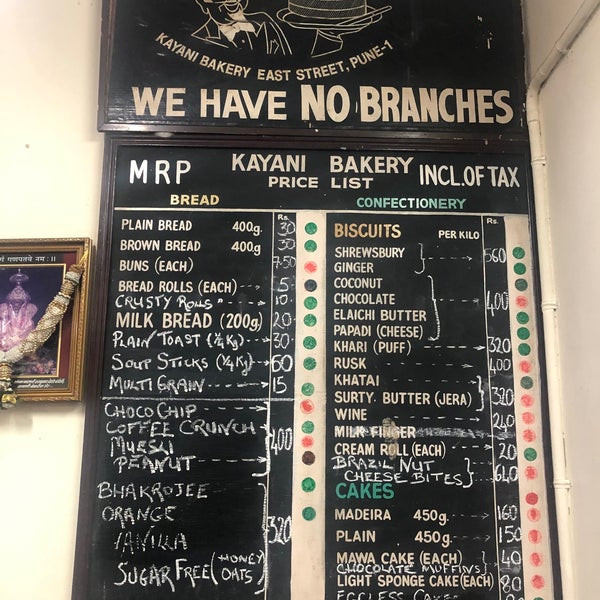 KAYANI BAKERY EAST STREET, PUNE-1
WE HAVE NO BRANCHES
MRP KAYANI BAKERY INCL.OF TAX
PRICE LIST
BREAD
Rs.
PLAIN BREAD 400g. 30
BROWN BREAD 400g 30
BUNS (EACH) 7.50
BREAD ROLLS (EACH) 5
CRUSTY ROLLS " 10
MILK BREAD (200g) 20
PLAIN TOAST (¼Kg) 30
SOUP STICKS (¼Kg) 60
MULTI GRAIN 15
CHOCO CHIP
COFFEE CRUNCH
MUESLI
PEANUT
400
BHAKROJEE
ORANGE
VANILLA
SUGAR FREE (HONEY OATS)
320
CONFECTIONERY
Rs.
BISCUITS PER KILO
SHREWSBURY
GINGER
560
COCONUT
CHOCOLATE
ELAICHI BUTTER
PAPADI (CHEESE)
400
KHARI (PUFF) 320
RUSK 400
KHATAI
SURTY BUTTER (JERA)
320
WINE 240
MILK FINGER
CREAM ROLL (EACH) 20
BRAZIL NUT
CHEESE BITES
640
CAKES
MADEIRA 450g. 160
PLAIN 450g. 150
MAWA CAKE (EACH)
CHOCOLATE MUFFINS
40
LIGHT SPONGE CAKE (EACH) 80
EGGLESS CAKE